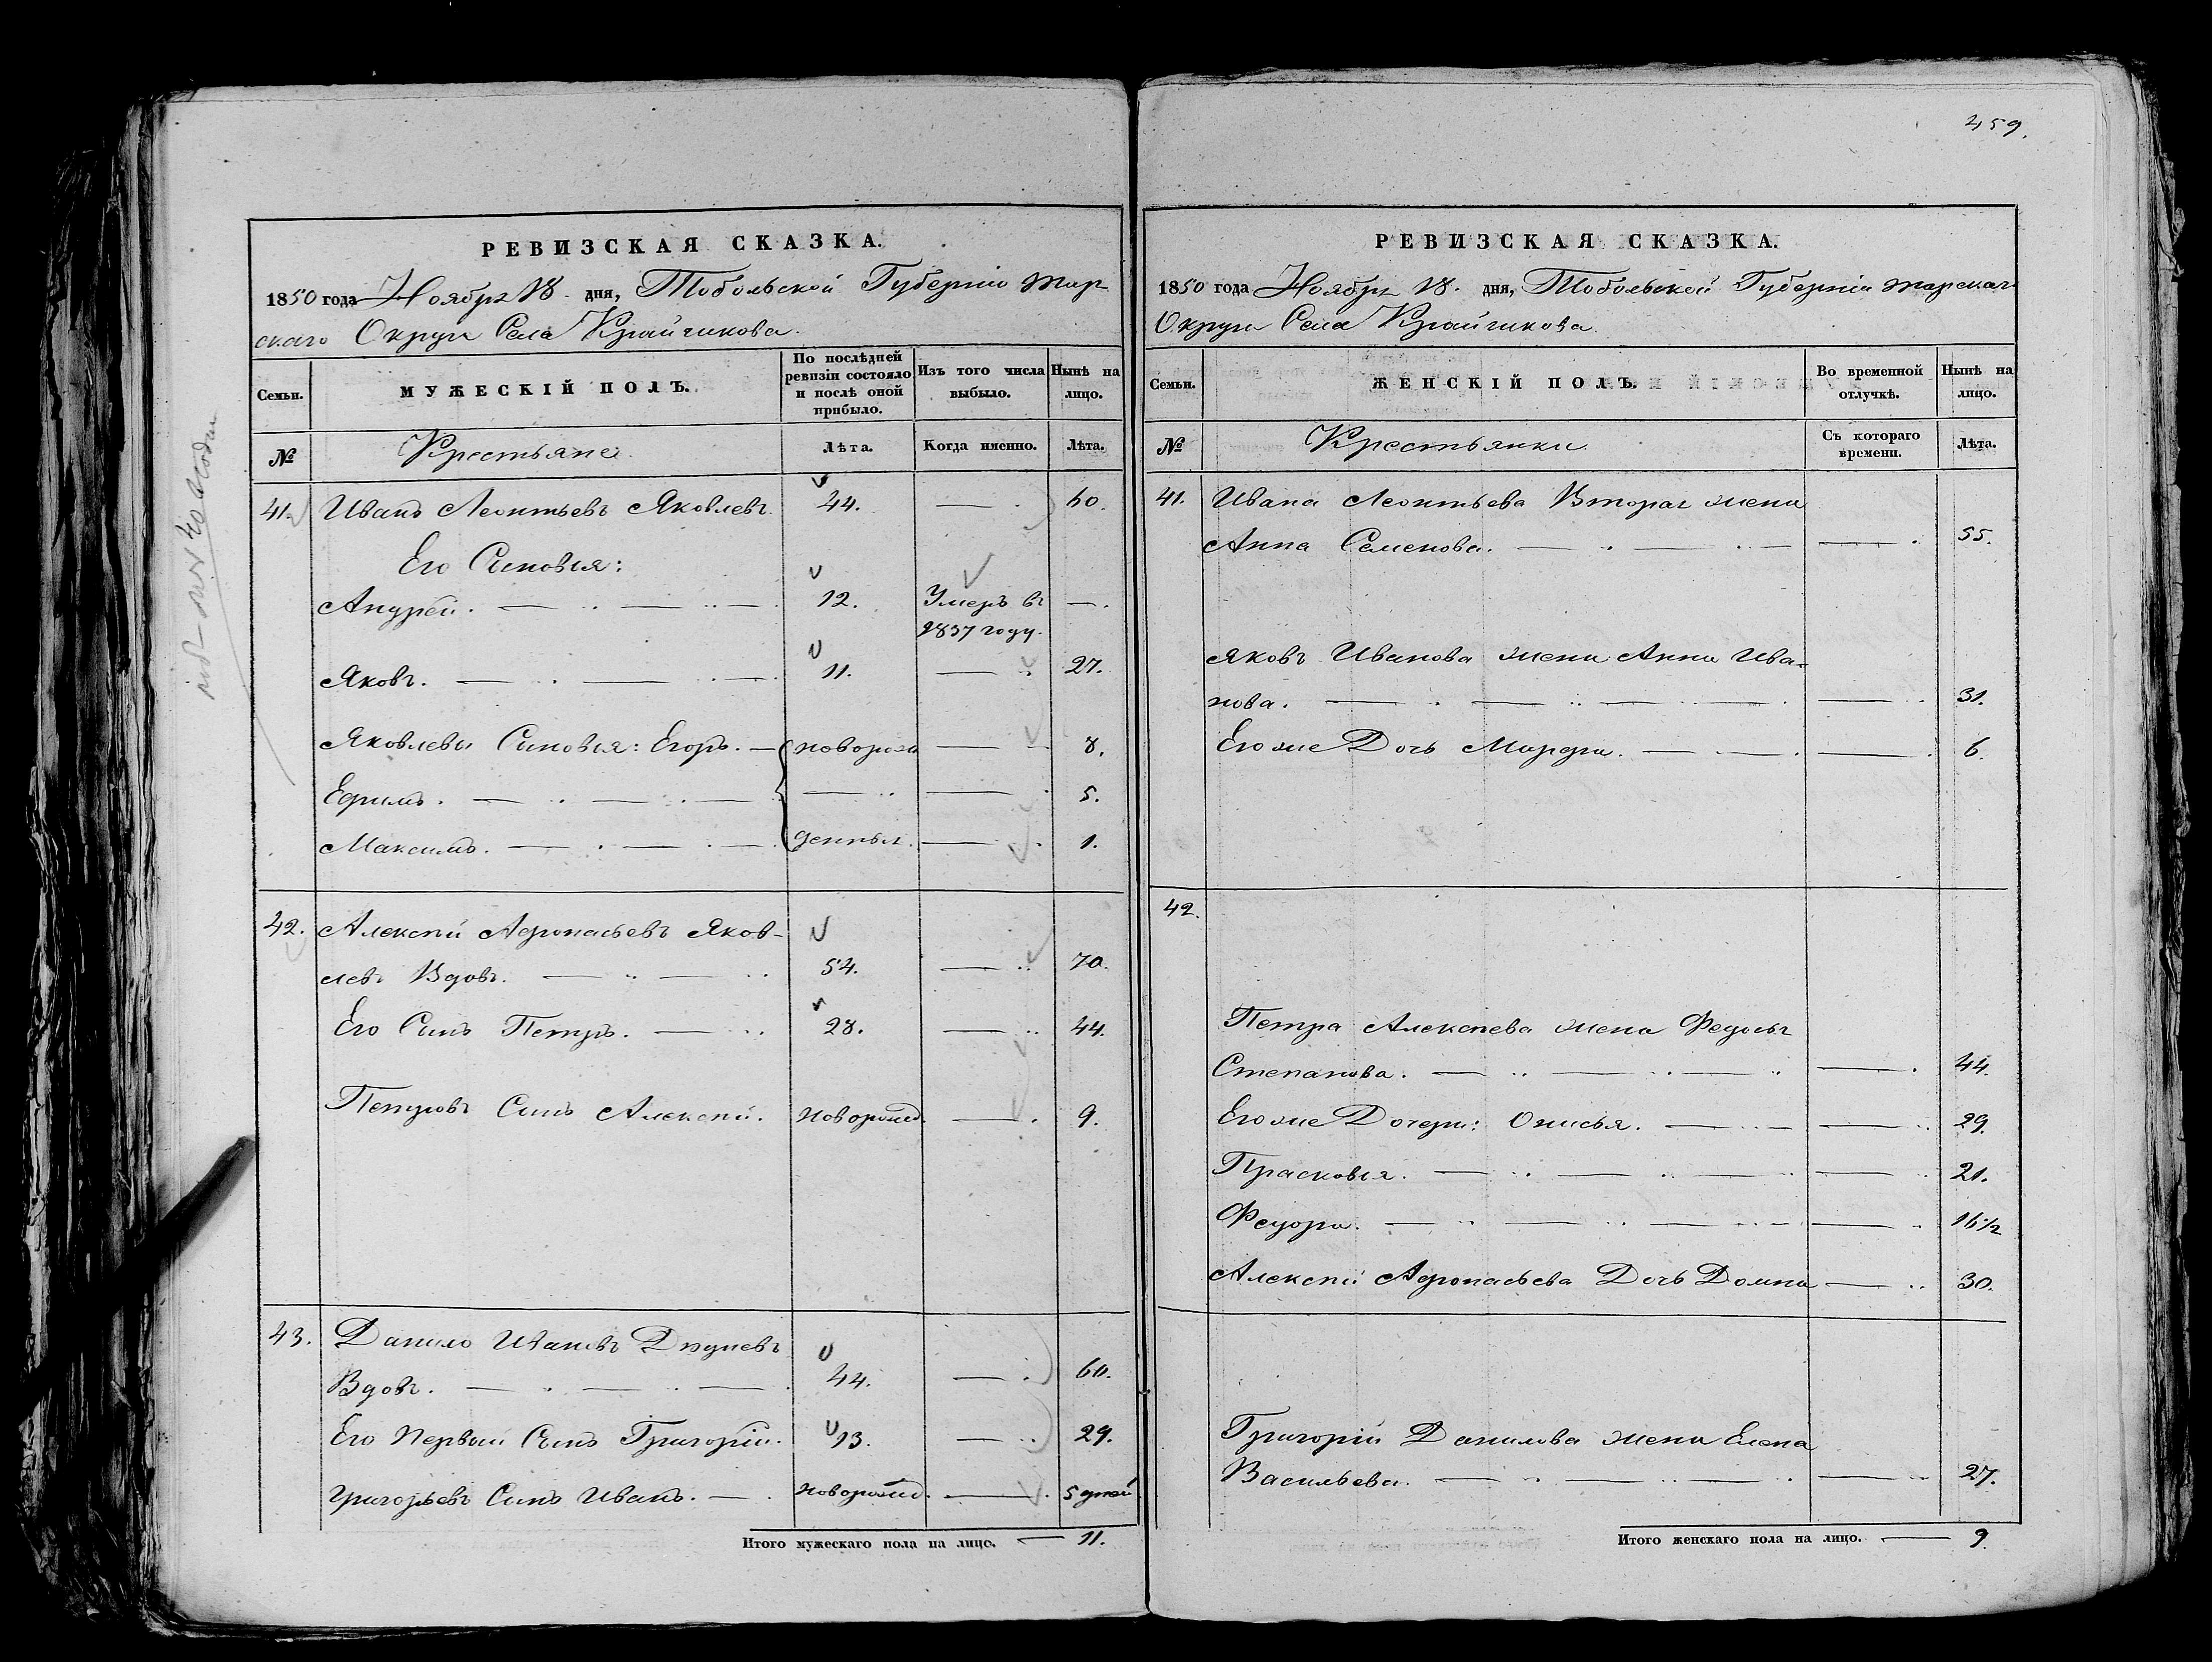 459.
РЕВИЗСКАЯ СКАЗКА.
1850 года Ноября 18. дня, Тобольской Губерніи Тар
скаго Округа Села Крайчикова.
Семьи.
МУЖЕСКІЙ ПОЛЪ.
По послѣдней ревизіи состояло и послѣ оной прибыло.
Изъ того числа выбыло.
Нынѣ на лицо.
№
Крестьяне
Лѣта.
Когда именно.
Лѣта.
41. Иванъ Леонтьевъ Яковлевъ 44. — 60.
Его Сыновья:
Андрей. — 12. Умеръ въ —.
1837 году.
Яковъ. — 11. — 27.
Яковлевы Сыновья: Егоръ. — новорож — 8.
Ефимъ. — — — 5.
Максимъ. — денныя. — 1.
42. Алексѣй Афонасьевъ Яков-
левъ Вдовъ. — 54. — 70.
Его Сынъ Петръ. — 28. — 44.
Петровъ Сынъ Алексѣй. новорожд. — 9.
43. Данило Ивановъ
Вдовъ. — 44. — 60.
Его Первый Сынъ Григорій. 13. — 29.
Григорьевъ Сынъ Иванъ. — новорожд. — 5 дней
Итого мужескаго пола на лицо. — 11.
РЕВИЗСКАЯ СКАЗКА.
1850 года Ноября 18. дня, Тобольской Губерніи Тарскаго
Округа Села Крайчикова
Семьи.
ЖЕНСКІЙ ПОЛЪ.
Во временной отлучкѣ.
Нынѣ на лицо.
№
Крестьянки
Съ котораго времени.
Лѣта.
41. Ивана Леонтьева Вторая жена
Анна Семенова. — — 55.
Яковъ Иванова жена Анна Ива-
нова. — — 31.
Его же Дочь Марфа. — — 6.
42.
Петра Алексѣева жена Федосья
Степанова. — — 44.
Его же Дочери: Онисья. — — 29.
Прасковья. — — 21.
Федора. — — 16½
Алексѣй Афонасьева Дочь Домна — 30.
Григорій Данилова жена Елена
Васильева. — — 27.
Итого женскаго пола на лицо. — 9